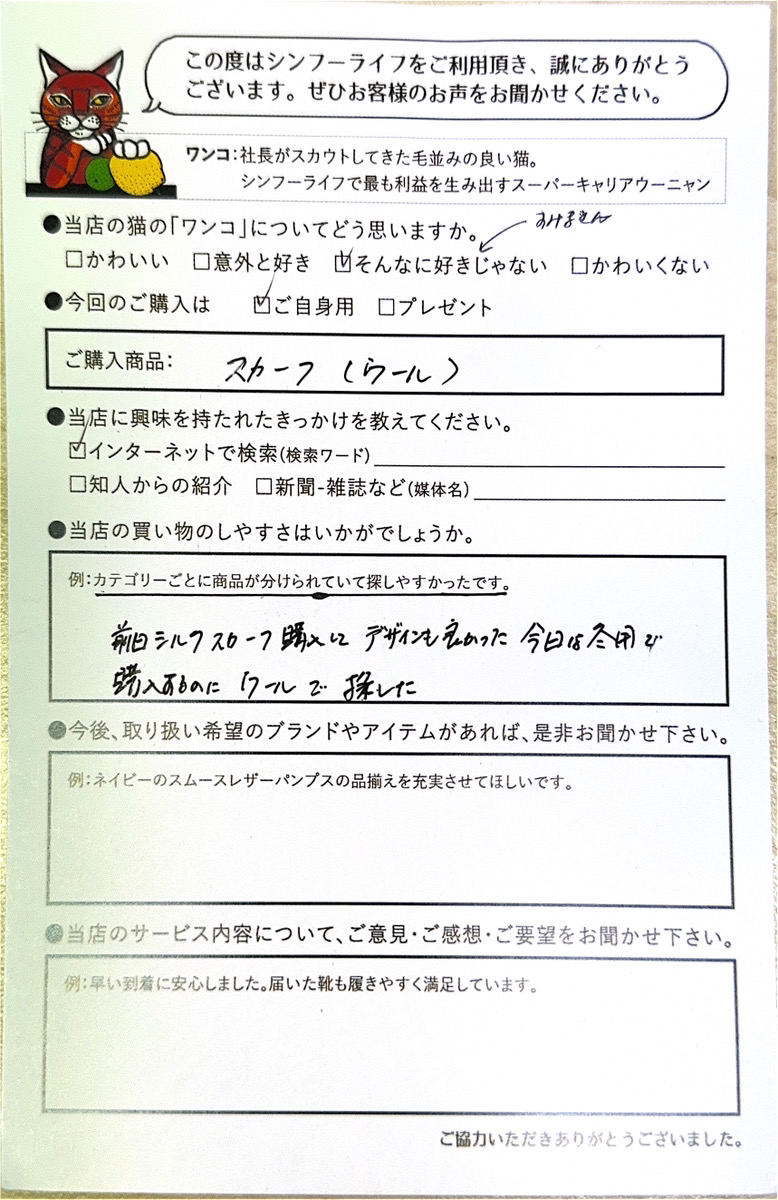 この度はシンフーライフをご利用頂き、誠にありがとう
ございます。ぜひお客様のお声をお聞かせください。
ワンコ：社長がスカウトしてきた毛並みの良い猫。
シンフーライフで最も利益を生み出すスーパーキャリアウーニャン
●当店の猫の「ワンコ」についてどう思いますか。 すみません
□かわいい □意外と好き ☑そんなに好きじゃない □かわいくない
●今回のご購入は ☑ご自身用 □プレゼント
ご購入商品： スカーフ（ウール）
●当店に興味を持たれたきっかけを教えてください。
☑インターネットで検索(検索ワード)
□知人からの紹介 □新聞-雑誌など(媒体名)
●当店の買い物のしやすさはいかがでしょうか。
例：カテゴリーごとに商品が分けられていて探しやすかったです。
前回シルクスカーフ購入して デザインも良かった 今回は冬用で
購入するのに ウールで 探した
●今後、取り扱い希望のブランドやアイテムがあれば、是非お聞かせ下さい。
例：ネイビーのスムースレザーパンプスの品揃えを充実させてほしいです。
●当店のサービス内容について、ご意見・ご感想・ご要望をお聞かせ下さい。
例：早い到着に安心しました。届いた靴も履きやすく満足しています。
ご協力いただきありがとうございました。